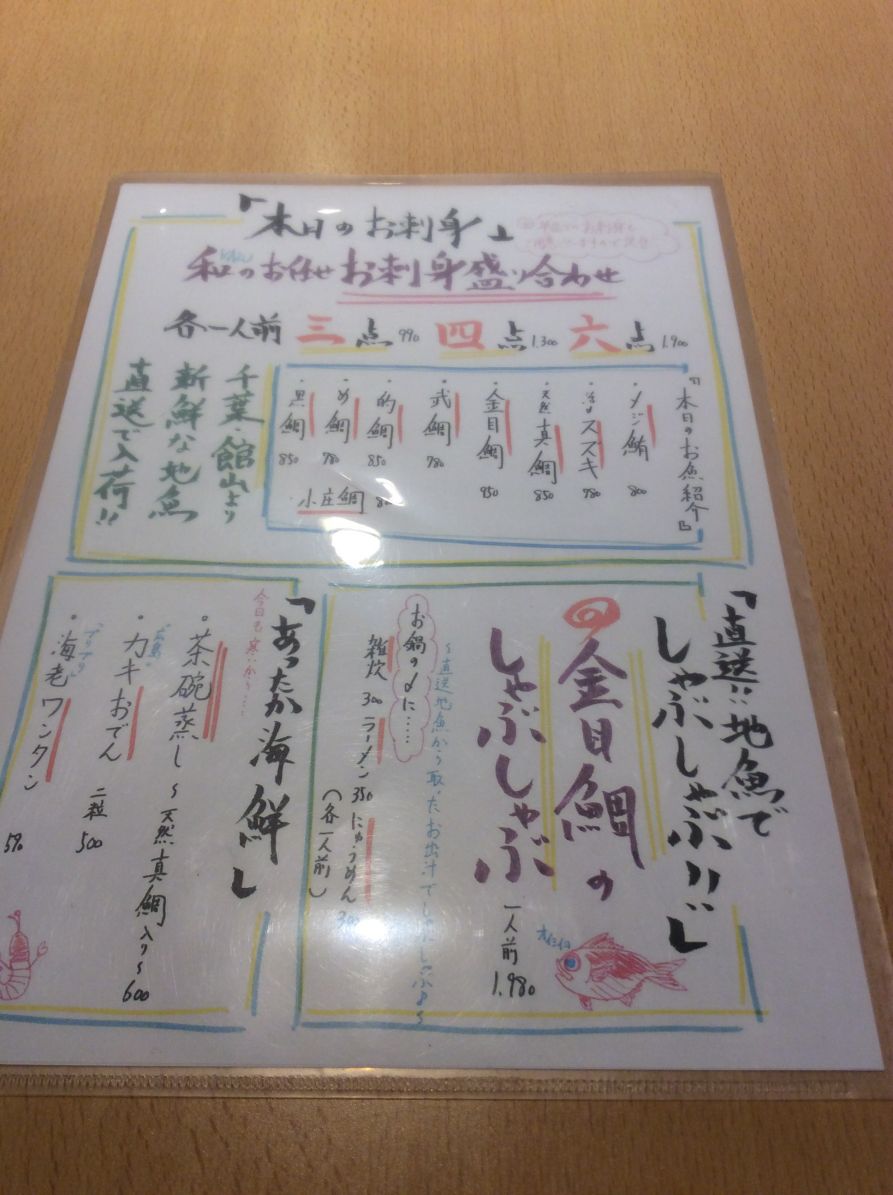 「本日のお刺身」
和のお任せお刺身盛り合わせ
各一人前 三点990 四点1.300 六点1.900
『本日のお魚紹介』
・メジ鮪 800
・活〆スズキ 780
・天然真鯛 850
・金目鯛 950
・武鯛 780
・的鯛 850
・め鯛 780
・黒鯛 850
・小庄鯛
千葉・館山より
新鮮な地魚
直送で入荷!!
「直送!!地魚で
しゃぶしゃぶ!!」
金目鯛の
しゃぶしゃぶ
一人前
1.980
～直送地魚から取ったお出汁でしゃぶしゃぶ♪～
お鍋の〆に……
雑炊 300 ラーメン 350 にゅうめん 300
(各一人前)
「あったか海鮮」
今日も寒いから…
・茶碗蒸し～天然真鯛入り～ 600
"広島"
・カキおでん 二粒 500
"プリプリ"
・海老ワンタン